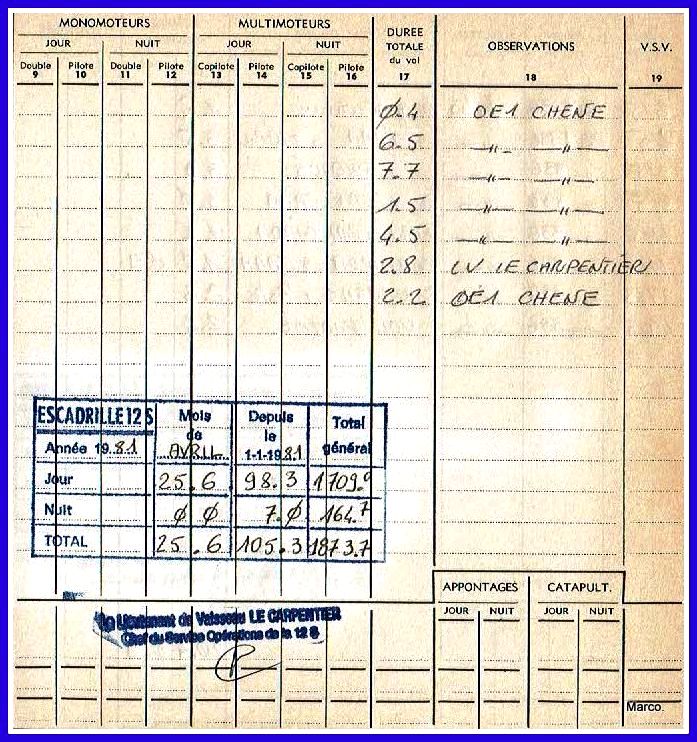 MONOMOTEURS MULTIMOTEURS DUREE TOTALE du vol OBSERVATIONS V.S.V.
JOUR NUIT JOUR NUIT
Double Pilote Double Pilote Copilote Pilote Copilote Pilote
9 10 11 12 13 14 15 16 17 18 19
Ø.4 OE1 CHENE
6.5 —〃— —〃—
7.7 —〃— —〃—
1.5 —〃— —〃—
4.5 —〃— —〃—
2.8 LV LE CARPENTIER
2.2 OE1 CHENE
ESCADRILLE 12 S Mois de Depuis le Total général
Année 19.81 AVRIL 1-1-1981
Jour 25.6 98.3 1709.0
Nuit Ø Ø 7.Ø 164.7
TOTAL 25.6 105.3 1873.7
APPONTAGES CATAPULT.
JOUR NUIT JOUR NUIT
Le Lieutenant de Vaisseau LE CARPENTIER
Chef du Service Opérations de la 12 S
Marco.